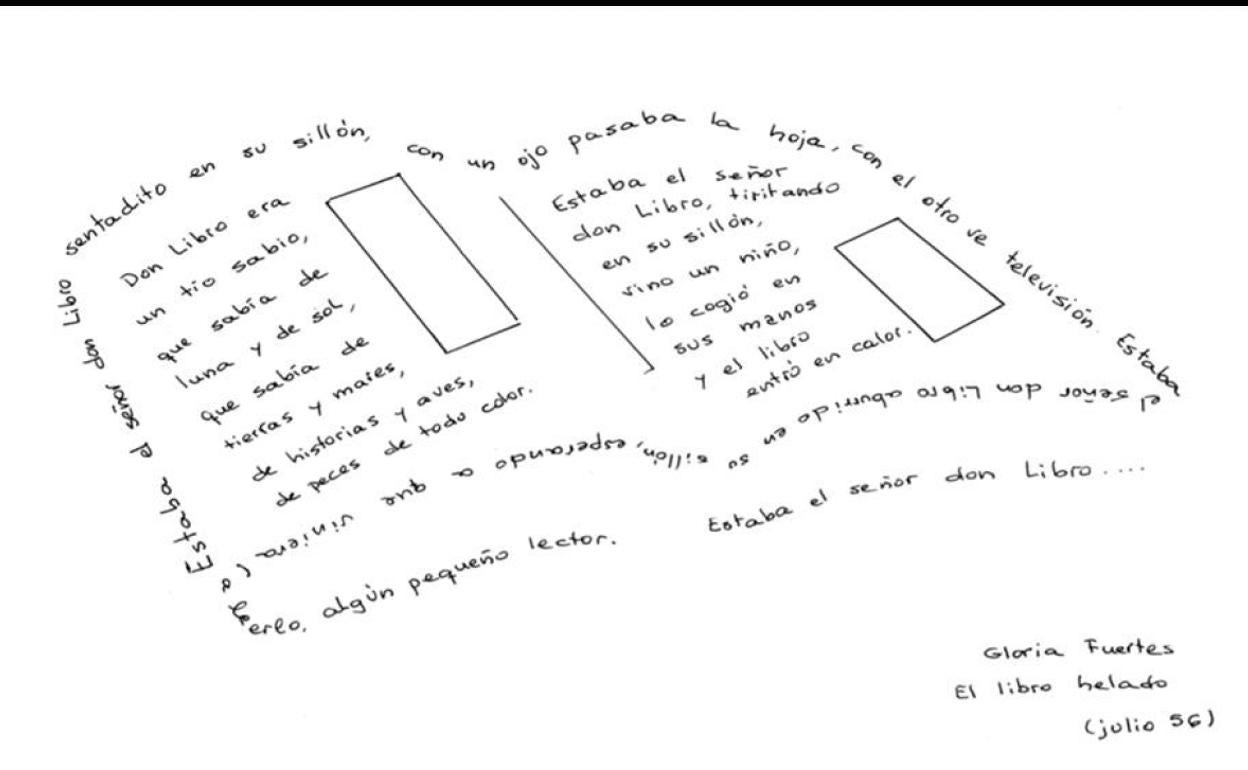 Estaba el señor don Libro sentadito en su sillón, con un ojo pasaba la hoja, con el otro ve televisión. Estaba el señor don Libro aburrido en su sillón, esperando a que viniera (a leerlo, algún pequeño lector.
Don Libro era
un tío sabio,
que sabía de
luna y de sol,
que sabía de
tierras y mares,
de historias y aves,
de peces de todo color.
Estaba el señor
don Libro, tiritando
en su sillón,
vino un niño,
lo cogió en
sus manos
y el libro
entró en calor.
Estaba el señor don Libro....
Gloria Fuertes
El libro helado
(julio 56)